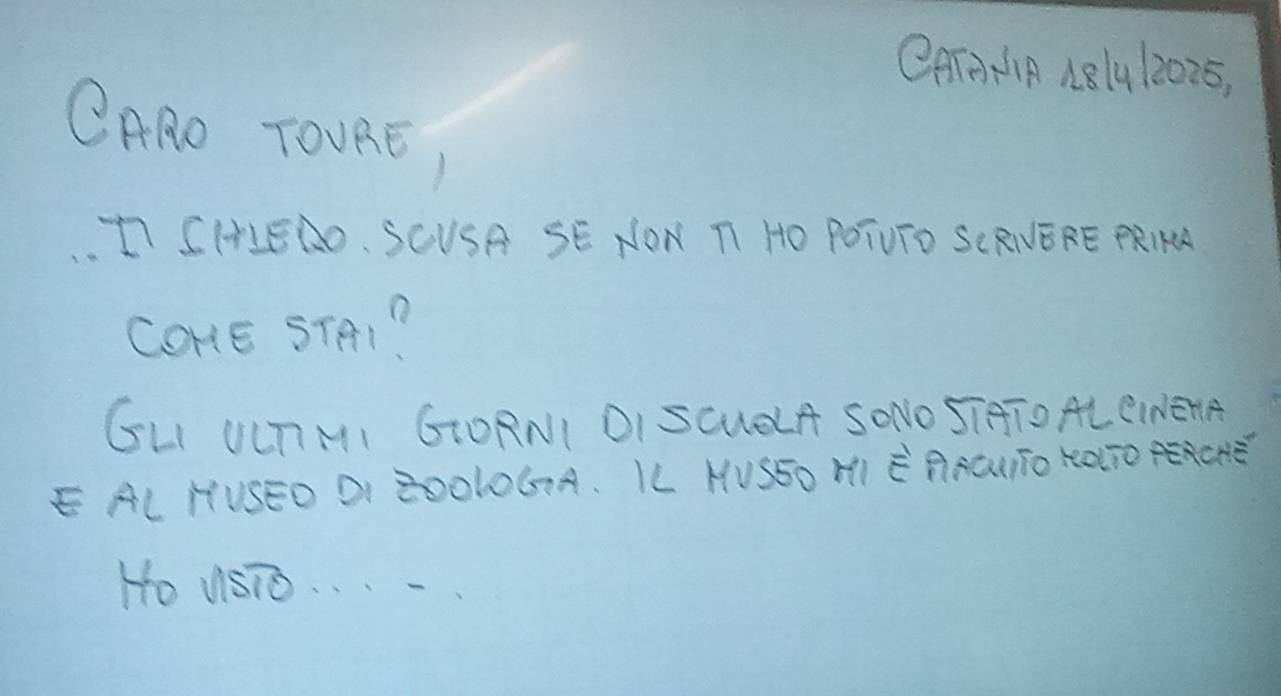 CATANIA 18/4/2025,
CARO TOURE,
..TI CHIEDO. SCUSA SE NON TI HO POTUTO SCRIVERE PRIMA
COME STAI?
GLI ULTIMI GIORNI DI SCUOLA SONO STATO AL CINEMA
E AL MUSEO DI ZOOLOGIA. IL MUSEO MI È PIACIUTO MOLTO PERCHÉ
HO VISTO.... - .